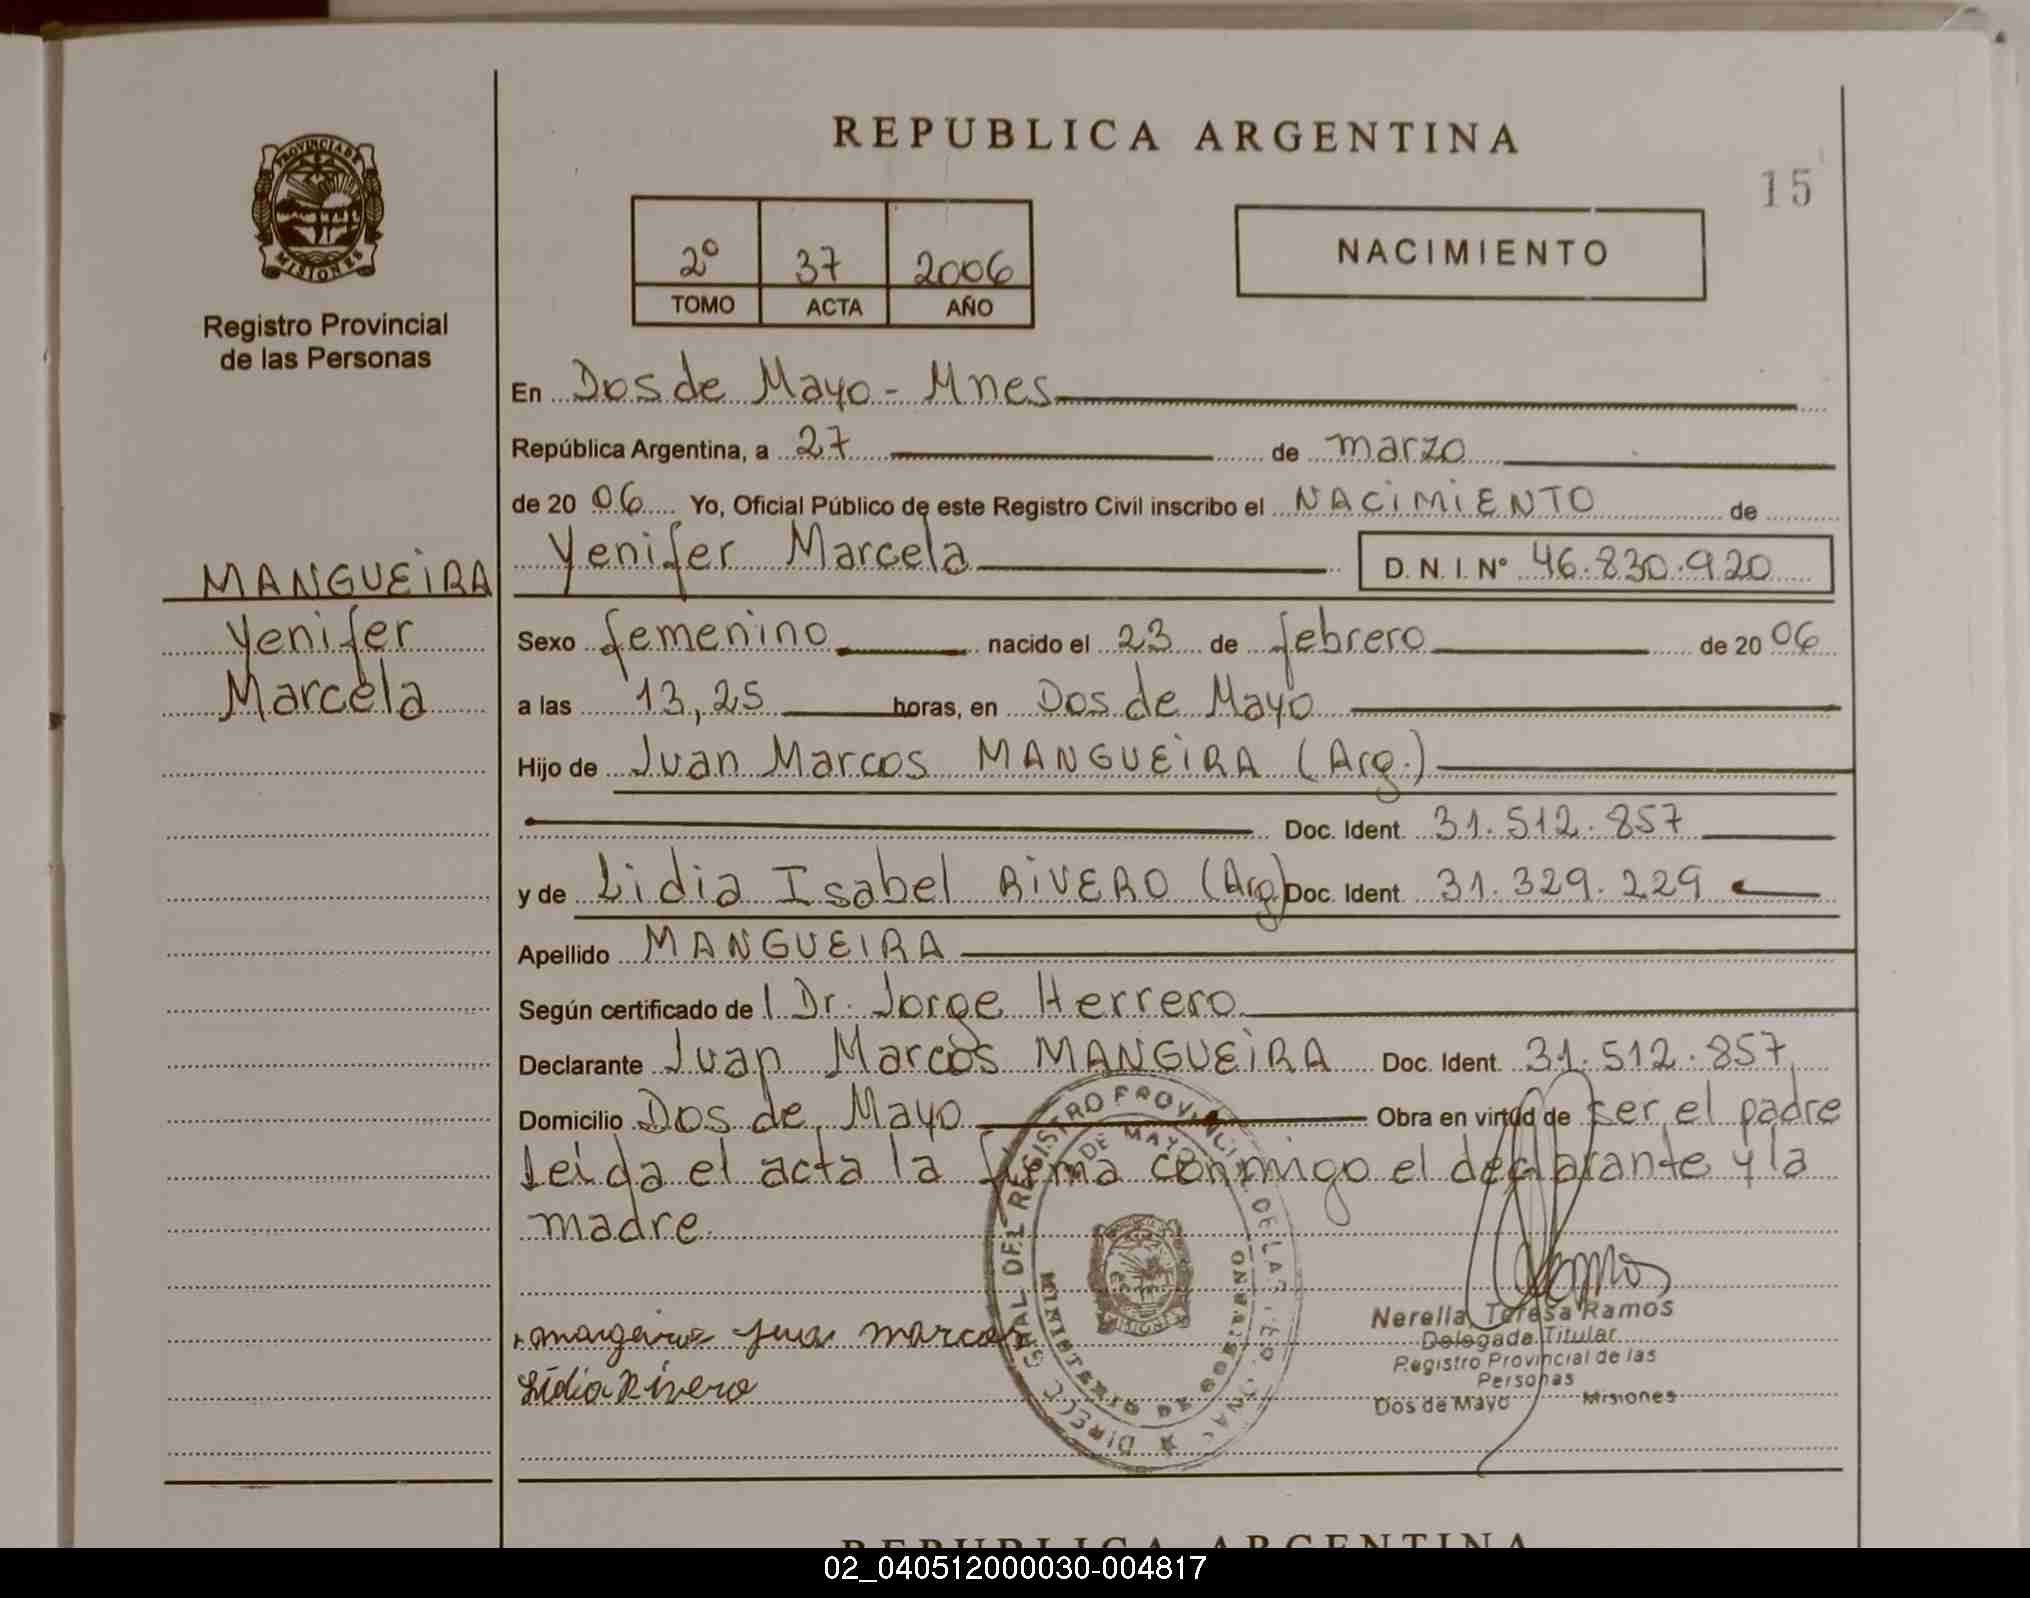 REPUBLICA ARGENTINA
15
PROVINCIA DE
MISIONES
Registro Provincial
de las Personas
2º 37 2006
TOMO ACTA AÑO
NACIMIENTO
En Dos de Mayo - Mnes
República Argentina, a 27 de marzo
de 20 06 Yo, Oficial Público de este Registro Civil inscribo el NACIMIENTO de
Yenifer Marcela D.N.I. Nº 46.830.920
MANGUEIRA
Yenifer
Marcela
Sexo femenino nacido el 23 de febrero de 20 06
a las 13,25 horas, en Dos de Mayo
Hijo de Juan Marcos MANGUEIRA (Arg.)
Doc. Ident. 31.512.857
y de Lidia Isabel RIVERO (Arg) Doc. Ident. 31.329.229
Apellido MANGUEIRA
Según certificado de l Dr. Jorge Herrero
Declarante Juan Marcos MANGUEIRA Doc. Ident. 31.512.857
Domicilio Dos de Mayo Obra en virtud de ser el padre
Leida el acta la firma conmigo el declarante y la
madre.
juan marcos
Lidia Rivero
Nerella Teresa Ramos
Delegada Titular
Registro Provincial de las
Personas
Dos de Mayo Misiones
REPUBLICA ARGENTINA
02_040512000030-004817